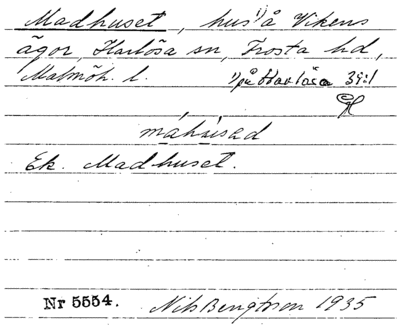 Madhuset, hus ¹⁾å Vikens
ägor, Harlösa sn, Frosta hd,
Malmöh. l. ¹⁾på Harlösa 39:1
måhusad
Ek. Madhuset.
Nr 5554. Nils Bengtsson 1935